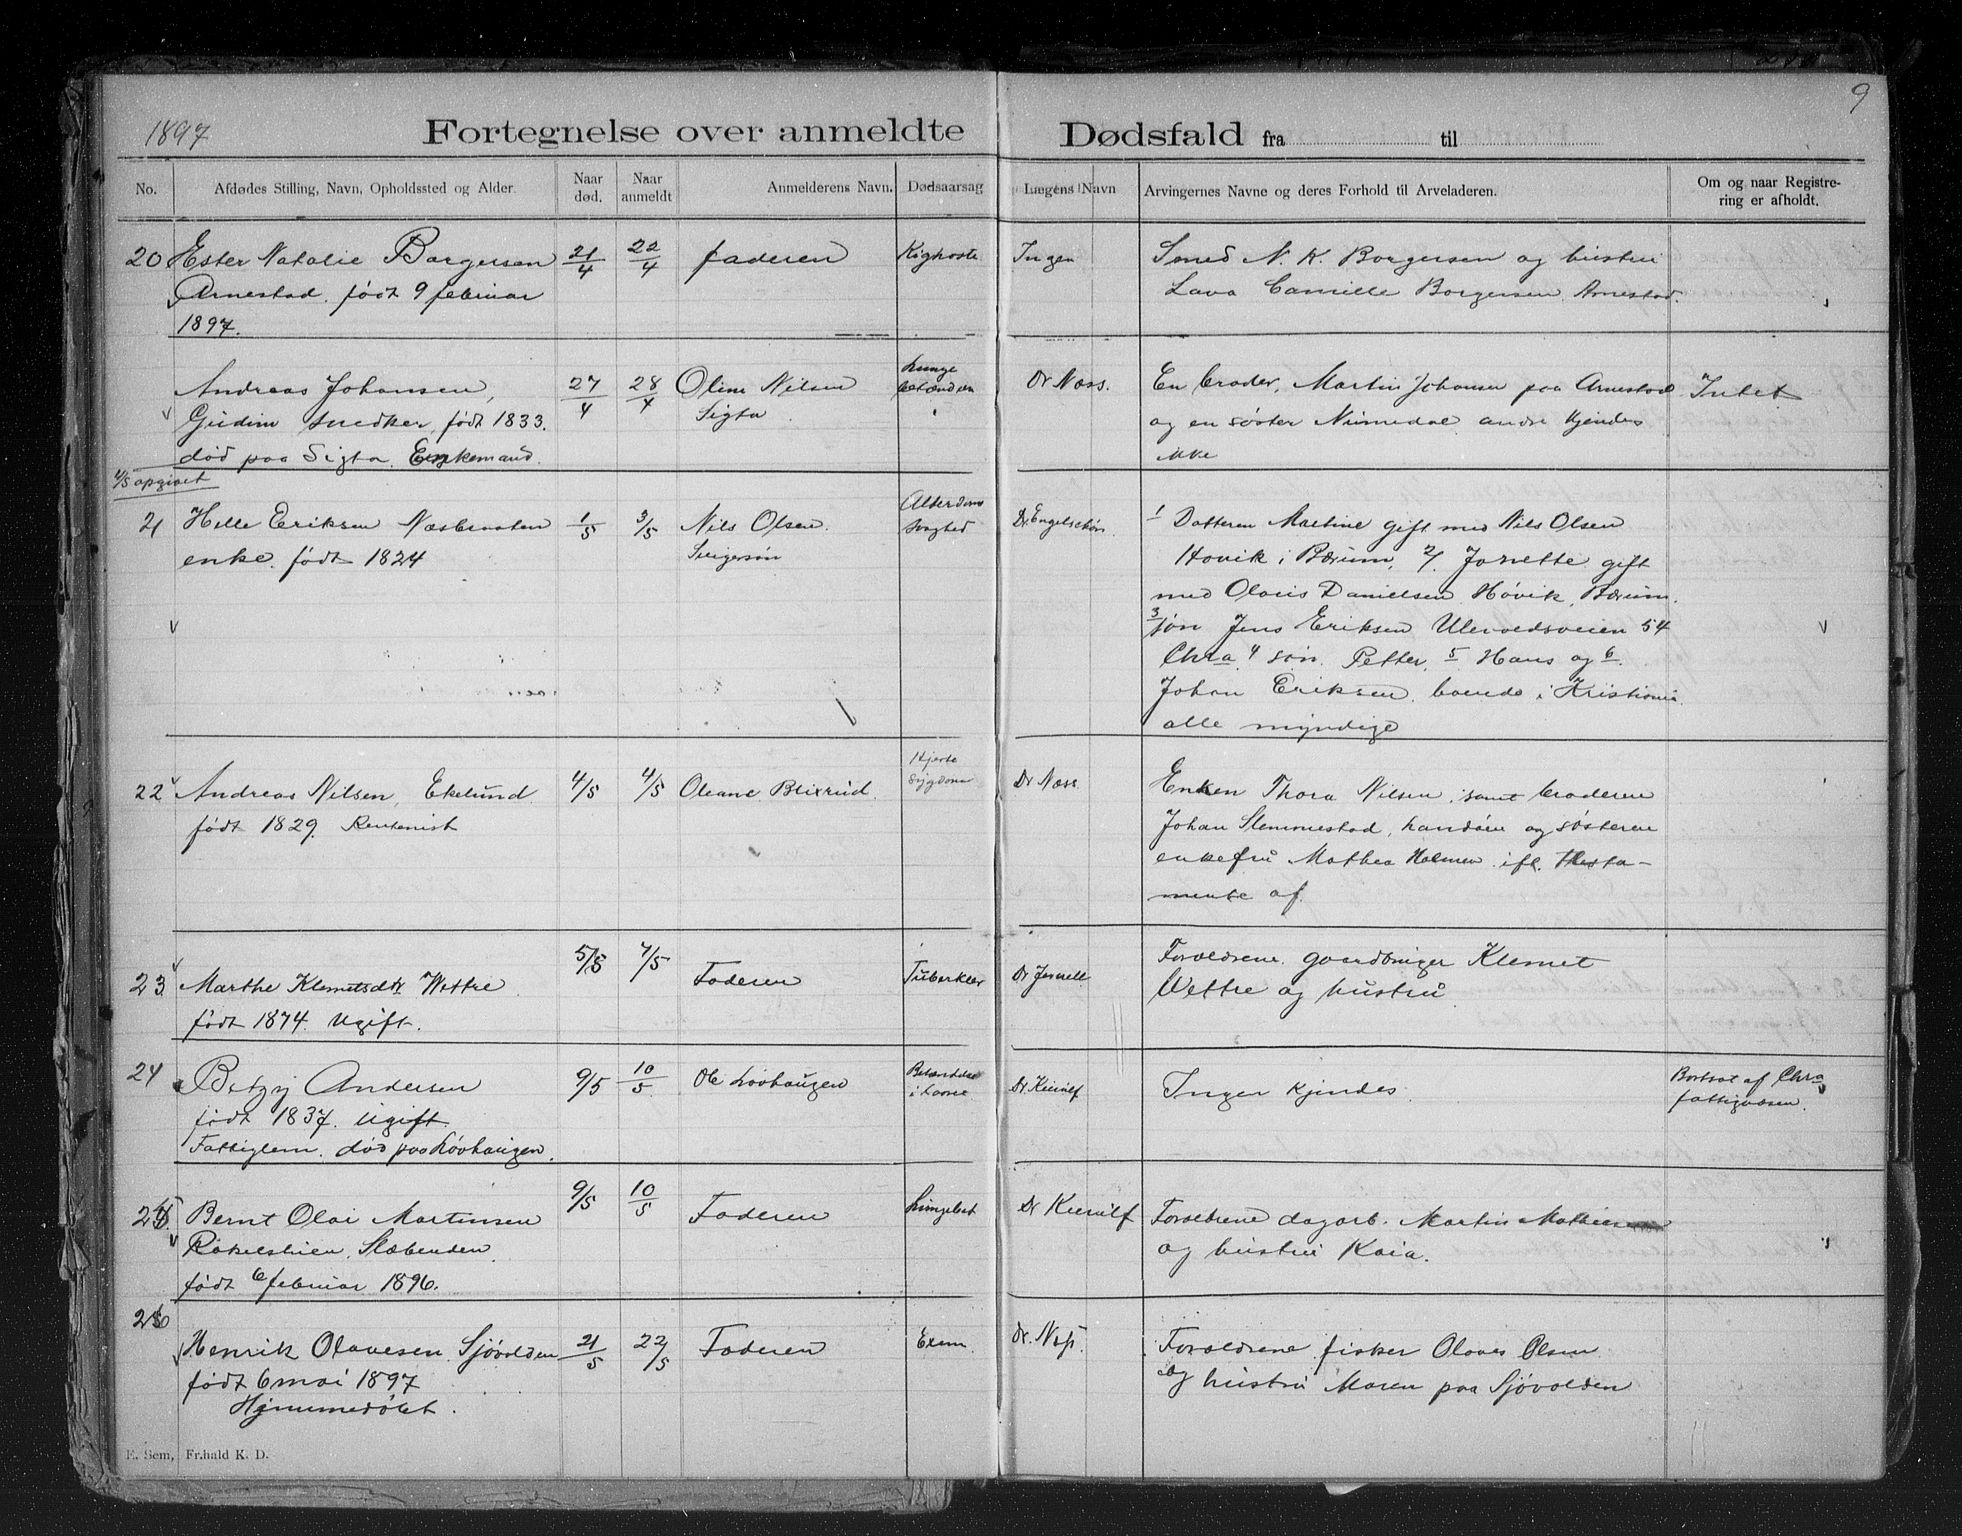 9
1897
Fortegnelse over anmeldte Dødsfald fra til
No. Afdødes Stilling, Navn, Opholdssted og Alder. Naar død. Naar anmeldt Anmelderens Navn. Dødsaarsag Lægens Navn Arvingernes Navne og deres Forhold til Arveladeren. Om og naar Registrering er afholdt.
20 Ester Natalie Borgersen 21/4 22/4 faderen Kighoste Ingen Smed N. K. Borgersen og hustru
Arnestad. født 9 februar Lava Camille Borgersen Arnestad.
1897.
Andreas Johansen, 27/4 28/4 Oline Nilsen Lunge Dr Næss. En broder, Martin Johansen paa Arnestad Intet
Gudim snedker, født 1833. Sigta betændelse og en søster Numedal andre kjendes
død paa Sigta. Enkemand. ikke
4/5 opgivet
21 Helle Eriksen Næsbraaten 1/5 3/5 Nils Olsen Alderdoms Dr. Engelschøn. 1 Datteren Martine gift med Nils Olsen
enke. født 1824 Svigersøn svaghed Høvik i Bærum, 2/. Jonette gift
med Olaus Danielsen Høvik, Bærum.
3/ søn Jens Eriksen Ulevoldsveien 54
Chra 4 søn. Petter, 5 Hans og 6.
Johan Eriksen, boende i Kristiania
alle myndige
22 Andreas Nilsen, Ekelund 4/5 4/5 Oleane Blixrud. Hjerte Dr Næss Enken Thora Nilsen, samt broderen
født 1829. Rentenist sygdom Johan Slemmestad, handøen og søsteren
enkefru Mathea Holmen ifl. Testa-
mente af.
23 Marthe Klemetsdtr Wettre 5/5 7/5 Faderen Tuberkler Dr Forældrene gaardbruger Klemet
født 1874. Ugift. Wettre og hustru.
24 Betzy Andersen 9/5 10/5 Ole Løvhaugen Betændelse Dr. Kierulf Ingen kjendes. Bortsat af Chra
født 1837. Ugift. i fattigvæsen.
Fattiglem. død paa Løvhaugen.
25 Bernt Olai Martinsen 9/5 10/5 Faderen Lungebet Dr Kierulf Forældrene dagarb. Martin
Slæbenden og hustru Kaia.
født 6 februar 1896.
26 Henrik Olavesen Sjøvolden 21/5 22/5 Faderen dr. Næss. Forældrene fisker Olaves Olsen
født 6 mai 1897 og hustru Maren paa Sjøvolden
Hjemmedøbt.
E. Sem, Fr.hald K. D.